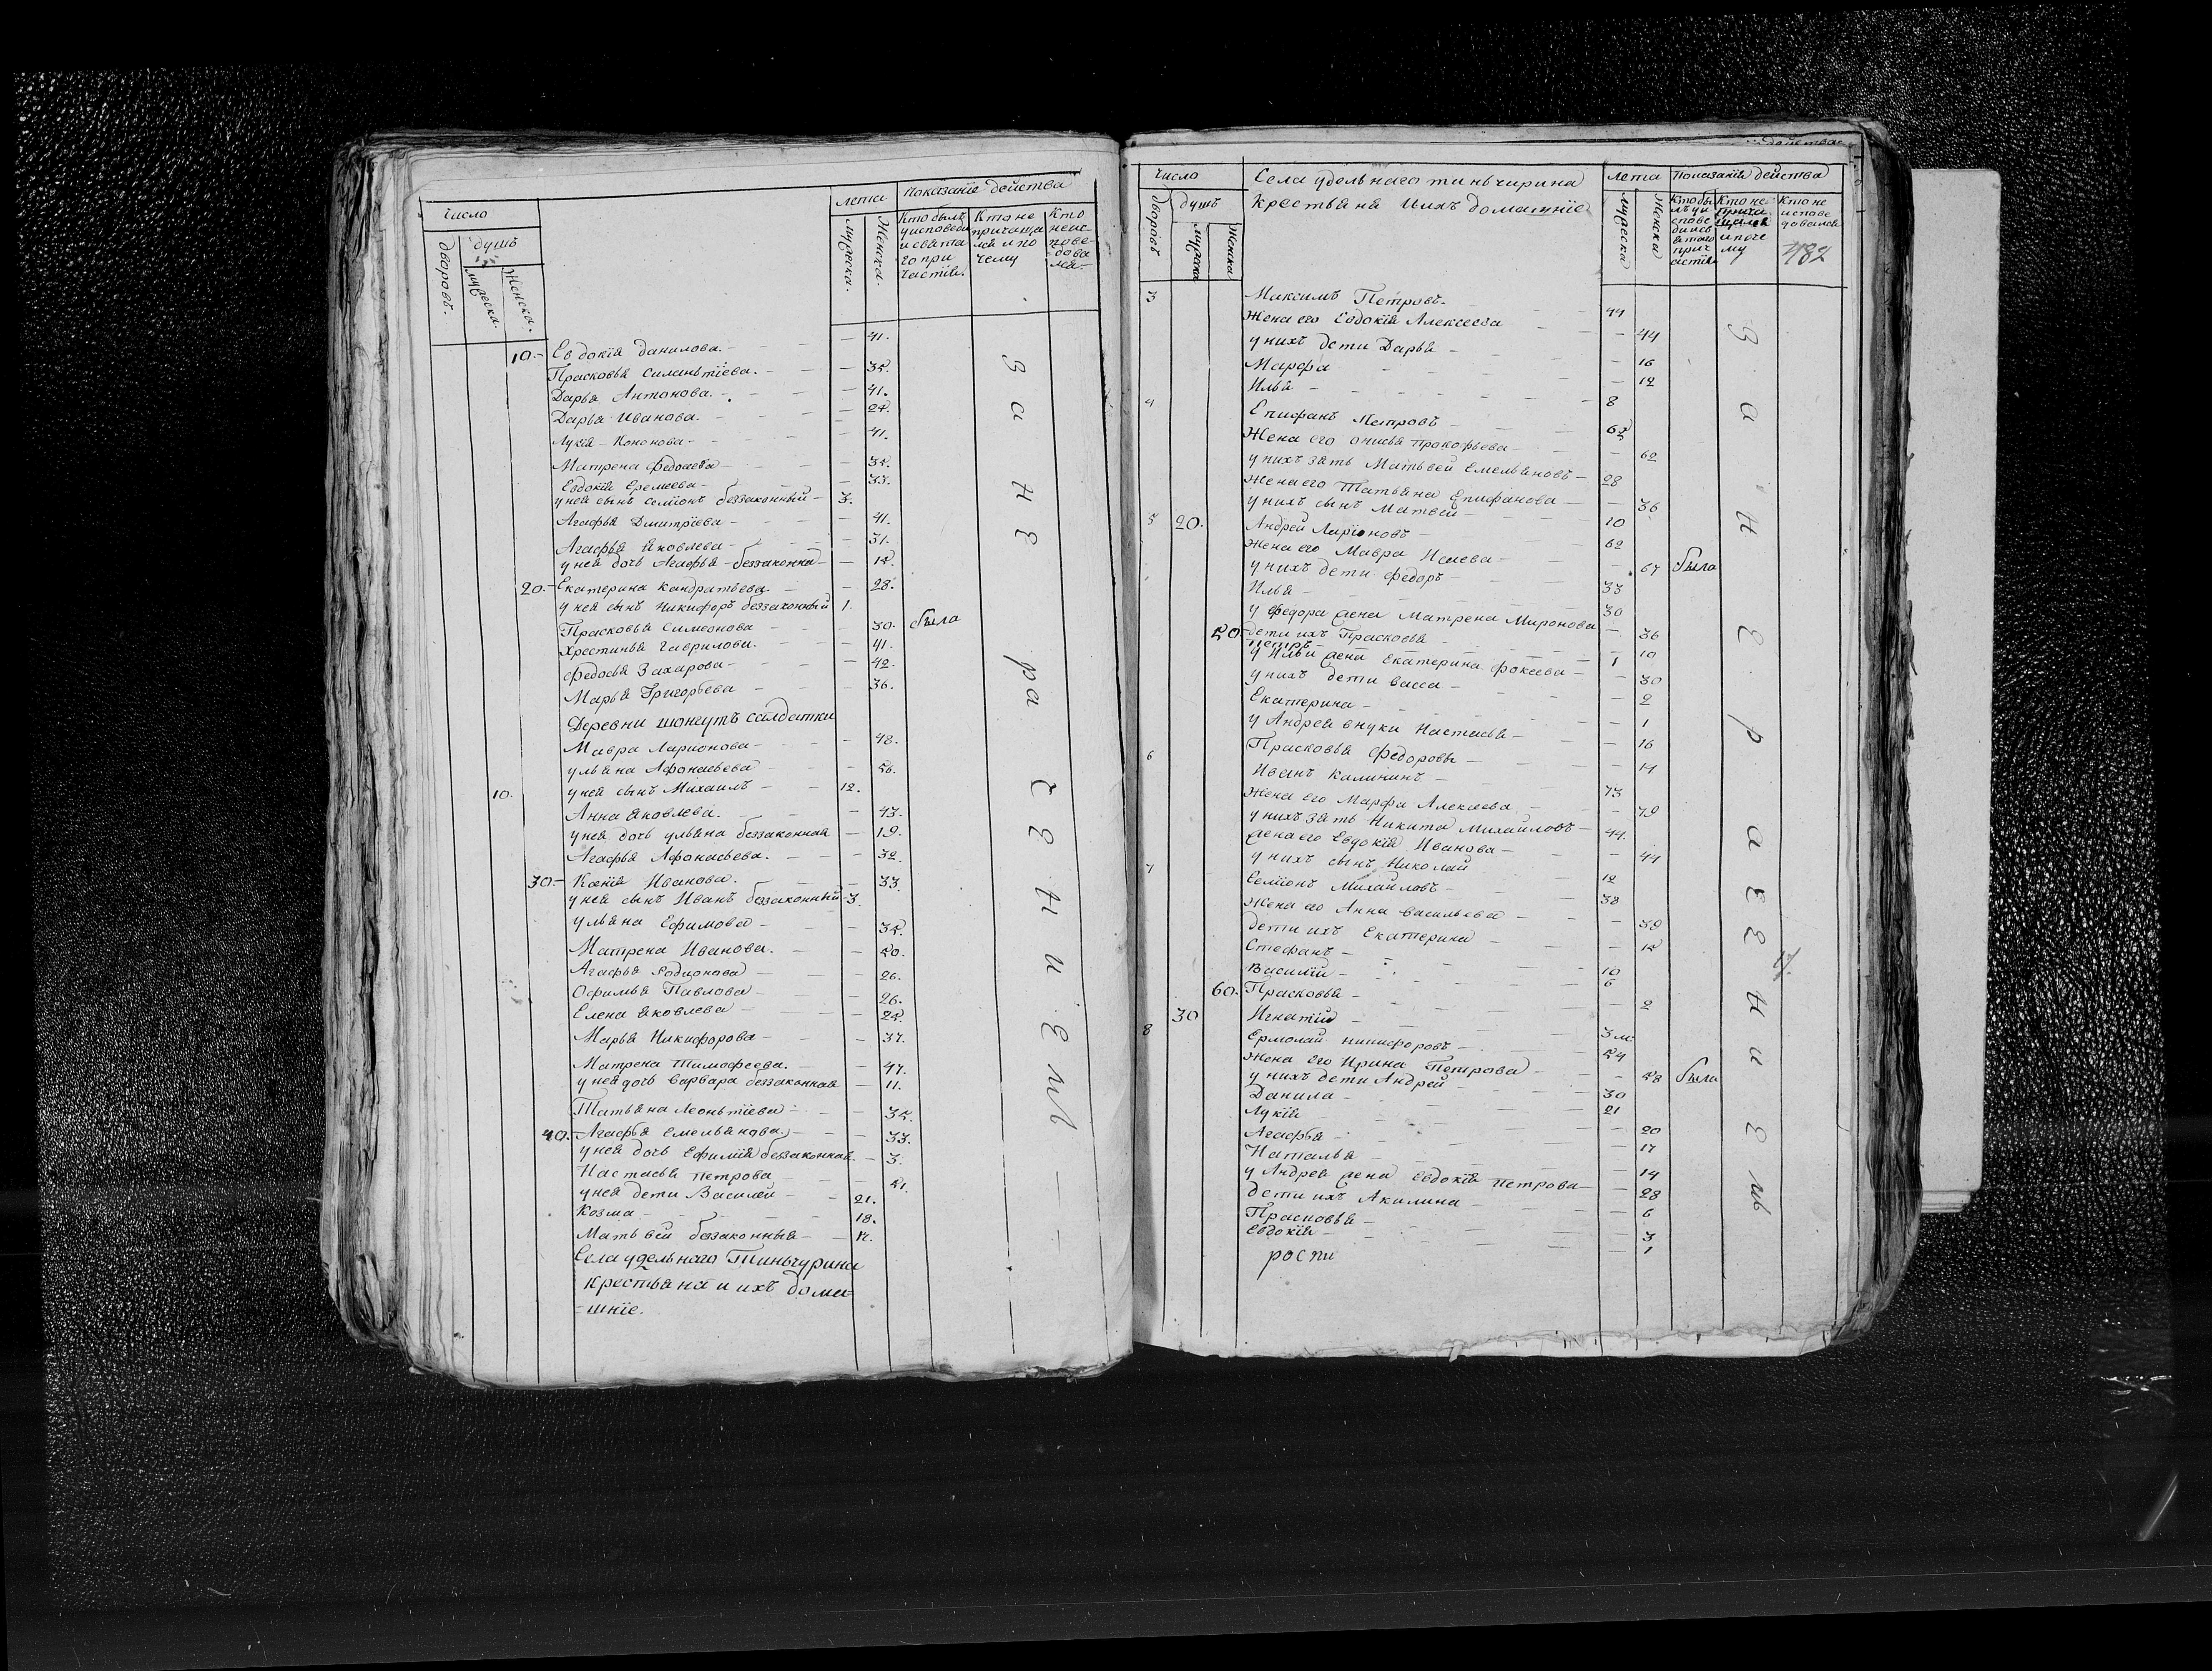 Число
Лета
Показанiе действа
Дворовъ.
Душъ
Мужеска.
Женска.
Мужеска.
Женска.
Кто былъ у исповеди и свята го при частiя.
Кто не причаща лся и по чему
Кто неис пове- дова лся.
10. Евдокiя Данилова. 41.
Прасковья Силаньтiева. 35.
Дарья Антонова. 41.
Дарья Иванова. 24.
Лукiя Кононова 41.
Матрена Федосеева 35.
Евдокiя Еремеева 33.
у ней сынъ Семiонъ беззаконный 3.
Агафья Дмитрiева 41.
Агафья Яковлева 31.
у ней дочь Агафья беззаконна 15.
20. Екатерина Кандратьева. 28.
у ней сынъ Никифоръ беззаконный 1.
Прасковья Симеонова 30. была
Хрестинья Гаврилова. 41.
Федосья Захарова 42.
Марья Григорьева 36.
Деревни Шонгутъ салдатки
Мавра Ларионова 48.
Ульяна Афонасьева 56.
10. у ней сынъ Михаилъ 12.
Анна Яковлева. 43.
у ней дочь Ульяна беззаконная 19.
Агафья Афонасьева. 32.
30. Ксенiя Иванова. 33.
у ней сынъ Иванъ беззаконный 3.
Ульяна Ефимова 35.
Матрена Иванова. 50.
Агафья Родионова 26.
Офимья Павлова 26.
Елена Яковлева 25.
Марья Никифорова 37.
Матрена Тимофеева. 47.
у ней дочь Варвара беззаконная 11.
Татьяна Леонтiева 35.
40. Агафья Емельянова. 33.
у ней дочь Ефимiя беззаконная. 3.
Настасья Петрова 51.
у ней дети Василей 21.
Козма 18.
Матьвей беззаконный
Села удельнаго Тиньчурина
крестьяна и ихъ дома=
=шнiе.
за нерачениемъ
Число
Села удельнаго тиньчирина
крестьяна и ихъ домашнiе
Лета
Показанiя действа
Дворовъ
Душъ
Мужеска
Женска
Мужеска
Женска
482
3 Максимъ Петровъ 44
Жена его Евдокiя Алексеева 44
у нихъ дети Дарья 16
Марфа 12
Илья 8
4 Епифанъ Петровъ 63
Жена его Прокофьева 62
у нихъ зять Матьвей Емельяновъ 28
Жена его Татьяна Епифанова 36
у нихъ сынъ Матвей 10
5 20. Андрей Ларiоновъ 62
Жена его Мавра Исаева 67 была
у нихъ дети Федоръ 33
Илья 30
у Федора жена Матрена Миронова 36
50. дети ихъ Прасковья 10
Петръ 1
у Ильи жена Екатерина Фокеева 30
у нихъ дети Васса 2
Екатерина 1
у Андрея внуки Настасья 16
Прасковья Федоровы 14
6 Иванъ Калининъ 73
Жена его Марфа Алексеева 79
у нихъ зять Никита Михайловъ 44.
жена его Евдокiя Иванова 44
у нихъ сынъ Николай 12
7 Семiонъ Михайловъ 38
Жена его Анна Васильева 39
Дети ихъ Екатерина 15
Стефанъ 10
Василiй 6
60. Прасковья 2
30 Игнатiй 3 м.
8 Ермолай Никифоровъ 54
Жена его Ирина Петрова 58 была
у нихъ дети Андрей 30
Данила 21
Лукiя 20
Агафья 17
Наталья 14
у Андрея жена Евдокiя Петрова 28
Дети ихъ Акилина 6
Прасковья 3
Евдокiя 1
роспи
за нерачениемъ